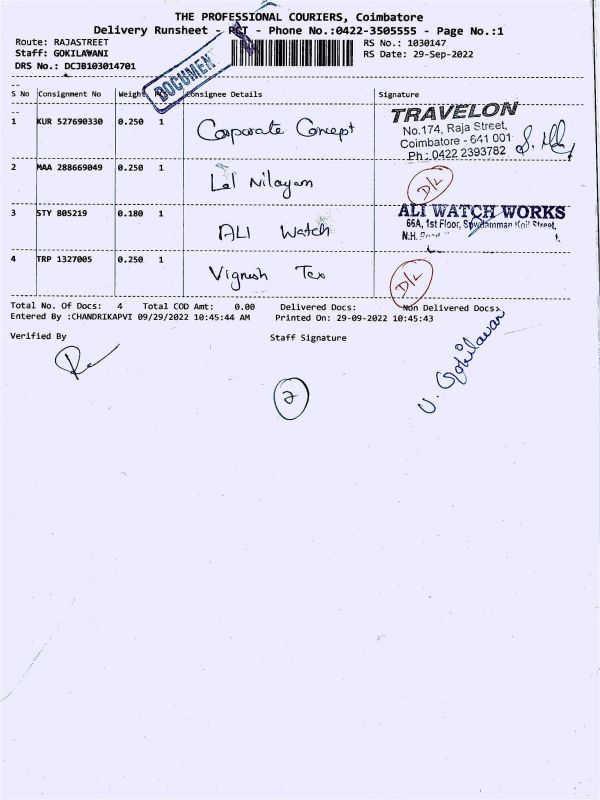 THE PROFESSIONAL COURIERS, Coimbatore
Delivery Runsheet - PCT - Phone No.:0422-3505555 - Page No.:1
Route: RAJASTREET
RS No.: 1030147
Staff: GOKILAWANI
RS Date: 29-Sep-2022
DRS No.: DCJB103014701
DOCUMEN
S No Consignment No Weight Pcs Consignee Details Signature
1 KUR 527690330 0.250 1 Corporate Concept
TRAVELON
No.174, Raja Street,
Coimbatore - 641 001
Ph : 0422 2393782
2 MAA 288669049 0.250 1 Lal Nilayam D/L
3 STY 805219 0.180 1 ALI Watch
ALI WATCH WORKS
66A, 1st Floor, Koil Street,
N.H.
4 TRP 1327005 0.250 1 Vignesh Tex D/L
Total No. Of Docs: 4 Total COD Amt: 0.00 Delivered Docs: Non Delivered Docs:
Entered By :CHANDRIKAPVI 09/29/2022 10:45:44 AM Printed On: 29-09-2022 10:45:43
Verified By Staff Signature
2